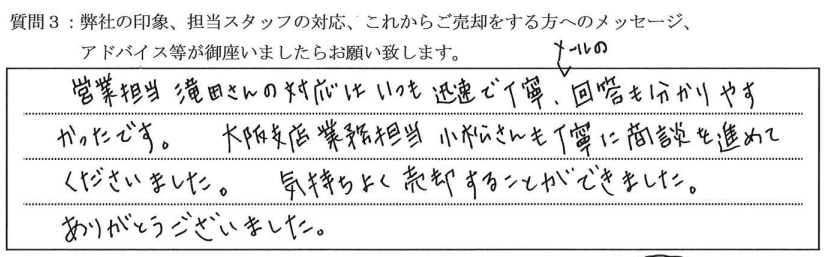 質問3：弊社の印象、担当スタッフの対応、これからご売却をする方へのメッセージ、
アドバイス等が御座いましたらお願い致します。
メールの
営業担当 滝田さんの対応はいつも迅速で丁寧、回答も分かりやす
かったです。 大阪支店業務担当 小松さんも丁寧に商談を進めて
くださいました。 気持ちよく売却することができました。
ありがとうございました。